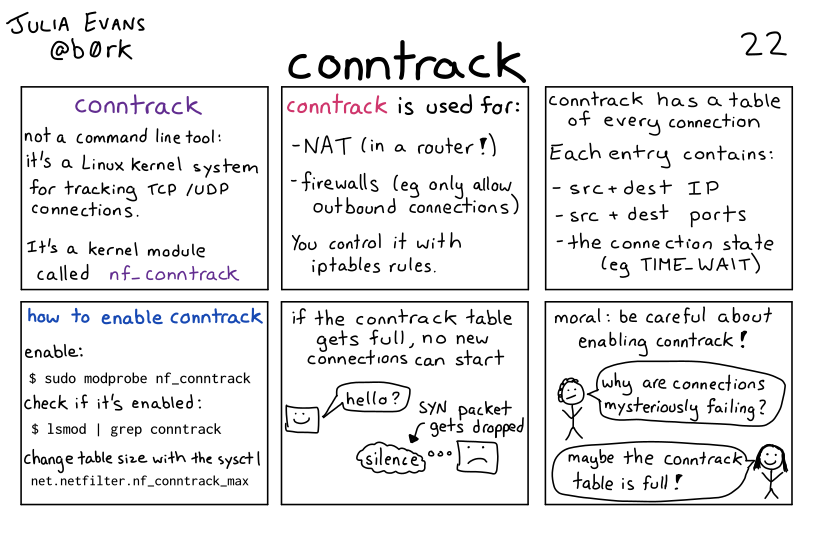 JULIA EVANS
@b0rk
conntrack
22
conntrack
not a command line tool:
it's a Linux kernel system
for tracking TCP/UDP
connections.
It's a kernel module
called nf_conntrack
conntrack is used for:
-NAT (in a router!)
-firewalls (eg only allow
outbound connections)
You control it with
iptables rules.
conntrack has a table
of every connection
Each entry contains:
- src+dest IP
- src + dest ports
- the connection state
(eg TIME_WAIT)
how to enable conntrack
enable:
$ sudo modprobe nf_conntrack
check if it's enabled:
$ lsmod | grep conntrack
change table size with the sysctl
net.netfilter.nf_conntrack_max
if the conntrack table
gets full, no new
connections can start
hello?
SYN packet
gets dropped
silence
moral: be careful about
enabling conntrack!
why are connections
mysteriously failing?
maybe the conntrack
table is full!